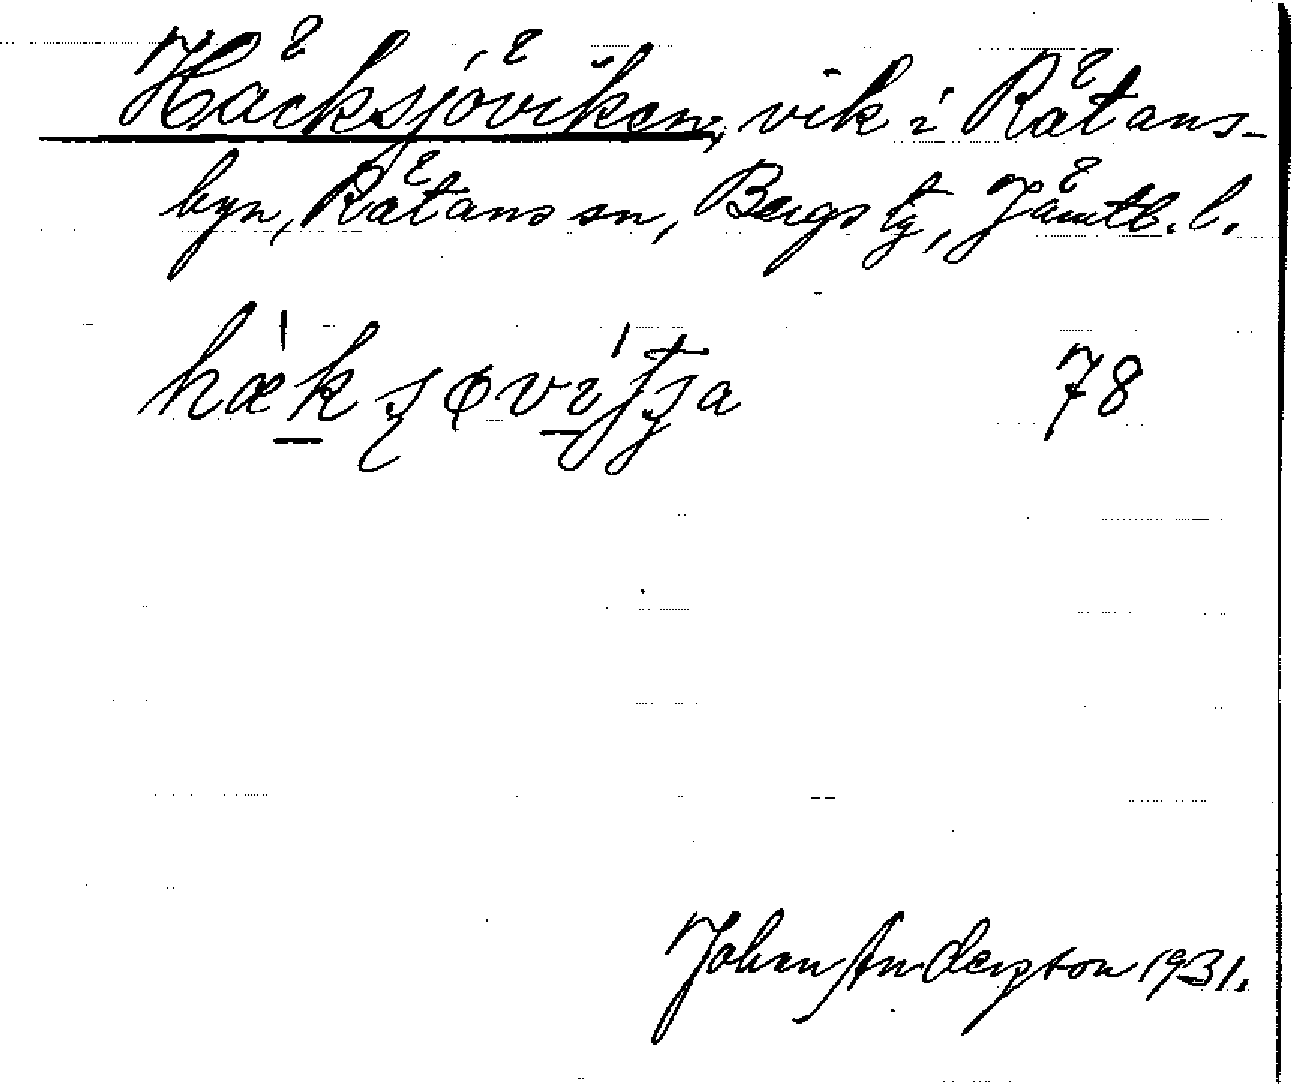 Häcksjöviken, vik i Rätans-
byn, Rätans sn, Bergs tg, Jämtl. l.
78
Johan Anderzton 1931.